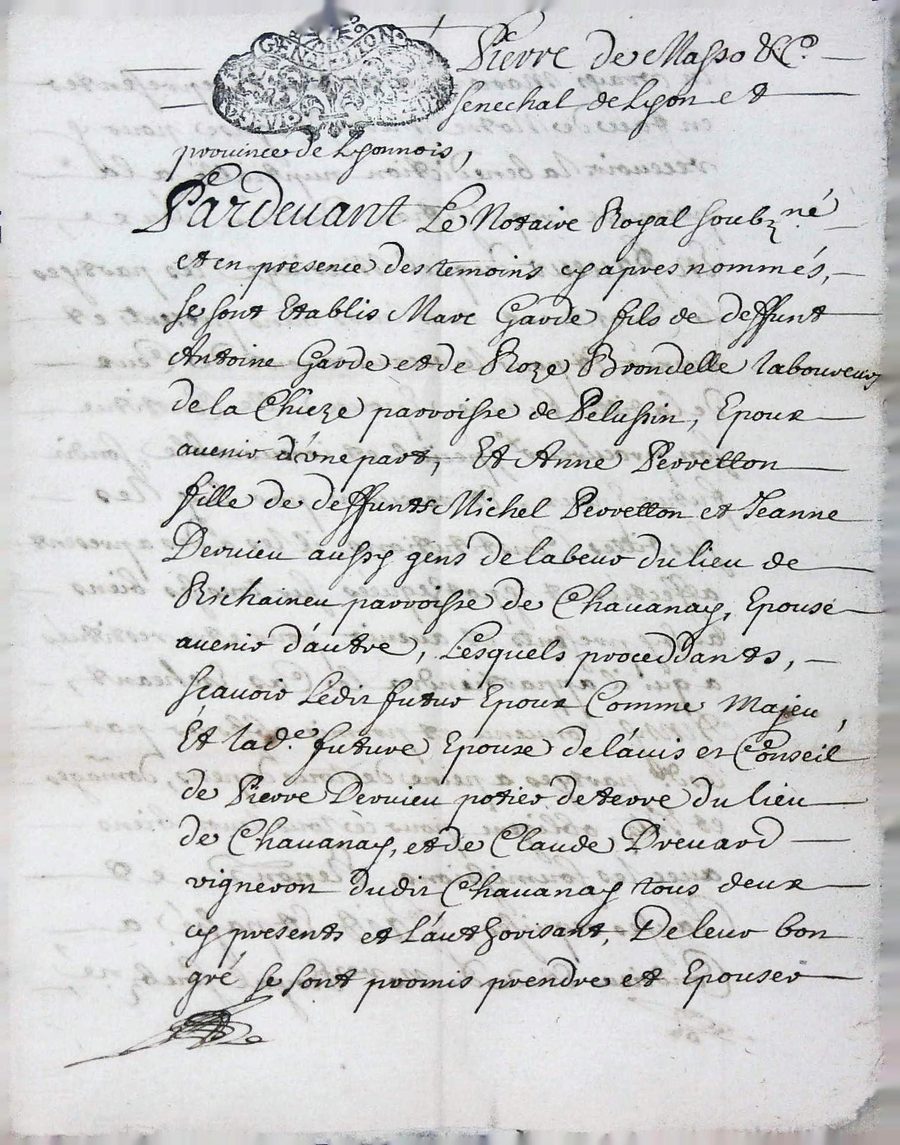 GEN. DE LION
Pierre de Masso &c.ª
senechal de Lyon et
prouince de Lyonnois,
Pardeuant Le Notaire Royal soubz.né
et en presence des temoins cy apres nommés,
se sont Etablis Marc Garde fils de deffunt
Antoine Garde et de Roze Brondelle laboureurs
de la Chieze parroisse de Pelussin, Epoux
auenir d'vne part, Et Anne Perretton
fille de deffunts Michel Perretton et Jeanne
Deruieu aussy gens de labeur du lieu de
Richaineu parroisse de Chauanay, Epouse
auenir d'autre, Lesquels proceddants,
sçauoir Ledit futur Epoux Comme Majeu,
Et lad.e future Epouse de l'auis et Conseil
de Pierre Deruieu potier de terre du lieu
de Chauanay, et de Claude Dreuard
vigneron dudit Chauanay tous deux
cy presents et L'authorisant, De leur bon
gré se sont promis prendre et Epouser